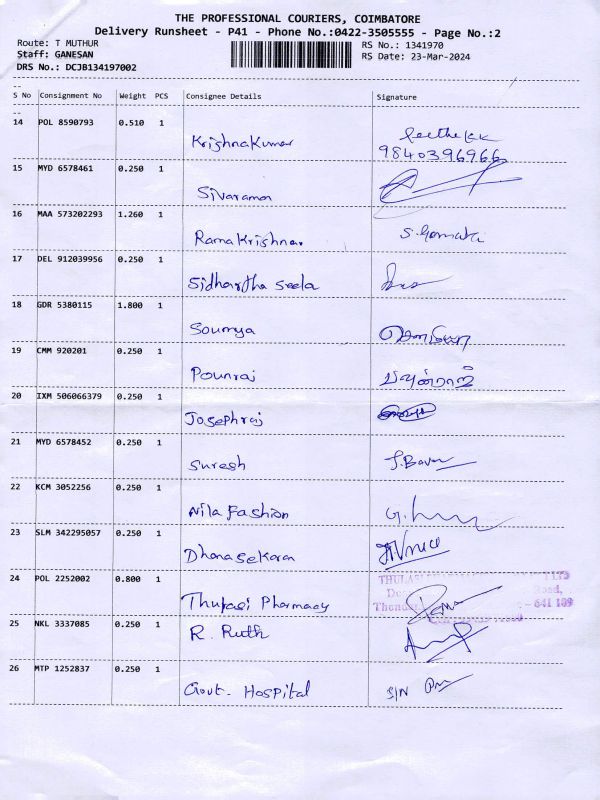 THE PROFESSIONAL COURIERS, COIMBATORE
Delivery Runsheet - P41 - Phone No.:0422-3505555 - Page No.:2
Route: T MUTHUR RS No.: 1341970
Staff: GANESAN RS Date: 23-Mar-2024
DRS No.: DCJB134197002
--
S No Consignment No Weight PCS Consignee Details Signature
--
14 POL 8590793 0.510 1
Krishnakumar
9840396966
15 MYD 6578461 0.250 1
Sivaraman
16 MAA 573202293 1.260 1
Ramakrishnan S. Gomathi
17 DEL 912039956 0.250 1
Sidhartha Seela
18 GDR 5380115 1.800 1
Soumya
19 CMM 920201 0.250 1
Pounraj பவுன்ராஜ்
20 IXM 506066379 0.250 1
Josephraj
21 MYD 6578452 0.250 1
Suresh
22 KCM 3052256 0.250 1
Nila Fashion
23 SLM 342295057 0.250 1
Dhanasekaran
24 POL 2252002 0.800 1
Thulasi Pharmacy
25 NKL 3337085 0.250 1
R. Ruth
26 MTP 1252837 0.250 1
Govt. Hospital S/N